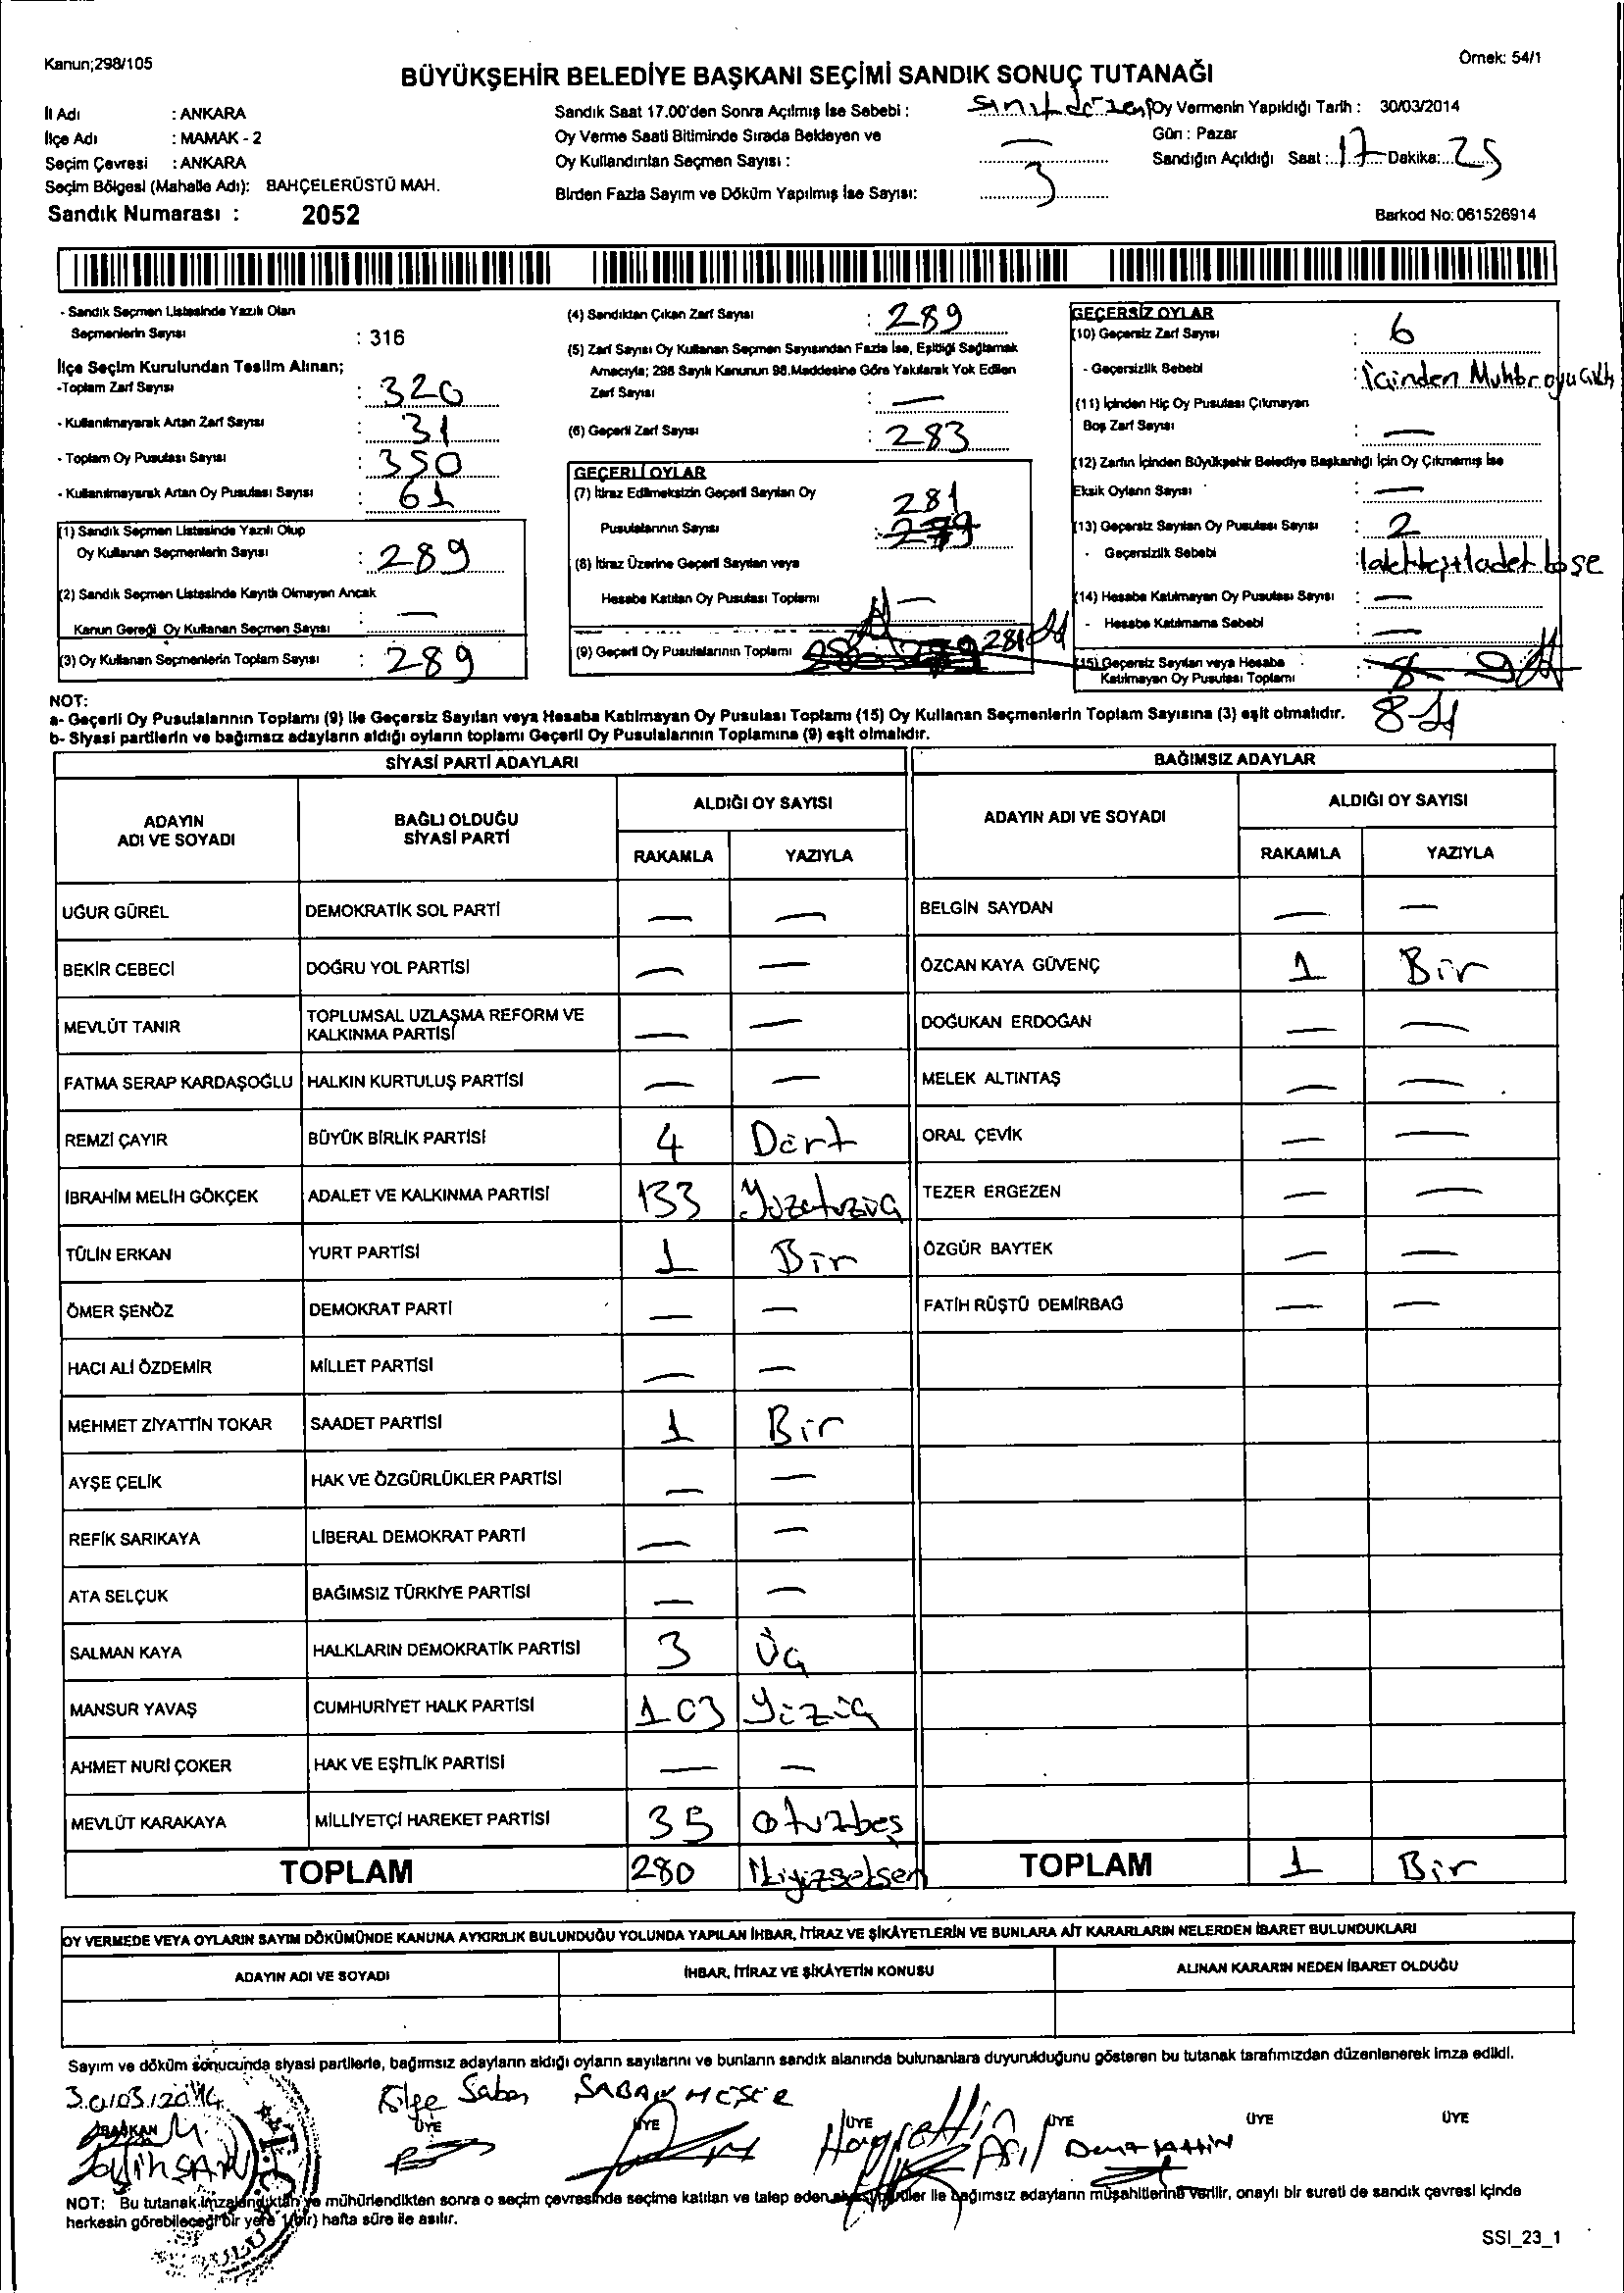 Kanun;298/105
Örnek: 54/1
BÜYÜKŞEHİR BELEDİYE BAŞKANI SEÇİMİ SANDIK SONUÇ TUTANAĞI
İl Adı : ANKARA
İlçe Adı : MAMAK - 2
Seçim Çevresi : ANKARA
Seçim Bölgesi (Mahalle Adı): BAHÇELERÜSTÜ MAH.
Sandık Numarası : 2052
Sandık Saat 17.00'den Sonra Açılmış İse Sebebi :
Oy Verme Saati Bitiminde Sırada Bekleyen ve
Oy Kullandırılan Seçmen Sayısı : —
Birden Fazla Sayım ve Döküm Yapılmış İse Sayısı: 3
Oy Vermenin Yapıldığı Tarih : 30/03/2014
Gün : Pazar
Sandığın Açıldığı Saat : 17 Dakika: 25
Barkod No: 061526914
- Sandık Seçmen Listesinde Yazılı Olan
Seçmenlerin Sayısı : 316
İlçe Seçim Kurulundan Teslim Alınan;
-Toplam Zarf Sayısı : 320
- Kullanılmayarak Artan Zarf Sayısı : 31
- Toplam Oy Pusulası Sayısı : 350
- Kullanılmayarak Artan Oy Pusulası Sayısı : 61
(1) Sandık Seçmen Listesinde Yazılı Olup
Oy Kullanan Seçmenlerin Sayısı : 289
(2) Sandık Seçmen Listesinde Kayıtlı Olmayan Ancak
Kanun Gereği Oy Kullanan Seçmen Sayısı : —
(3) Oy Kullanan Seçmenlerin Toplam Sayısı : 289
(4) Sandıktan Çıkan Zarf Sayısı : 289
(5) Zarf Sayısı Oy Kullanan Seçmen Sayısından Fazla İse, Eşitliği Sağlamak
Amacıyla; 298 Sayılı Kanunun 98.Maddesine Göre Yakılarak Yok Edilen
Zarf Sayısı : —
(6) Geçerli Zarf Sayısı : 283
GEÇERLİ OYLAR
(7) İtiraz Edilmeksizin Geçerli Sayılan Oy 281
Pusulalarının Sayısı : 279
(8) İtiraz Üzerine Geçerli Sayılan veya
Hesaba Katılan Oy Pusulası Toplamı : —
(9) Geçerli Oy Pusulalarının Toplamı 280 279 281
GEÇERSİZ OYLAR
(10) Geçersiz Zarf Sayısı : 6
- Geçersizlik Sebebi : İçinden Muhtar oyu çıktı
(11) İçinden Hiç Oy Pusulası Çıkmayan
Boş Zarf Sayısı : —
(12) Zarfın İçinden Büyükşehir Belediye Başkanlığı İçin Oy Çıkmamış İse
Eksik Oyların Sayısı : —
(13) Geçersiz Sayılan Oy Pusulası Sayısı : 2
- Geçersizlik Sebebi :
(14) Hesaba Katılmayan Oy Pusulası Sayısı : —
- Hesaba Katılmama Sebebi : —
(15) Geçersiz Sayılan veya Hesaba :
Katılmayan Oy Pusulası Toplamı 8 9
8
NOT:
a- Geçerli Oy Pusulalarının Toplamı (9) ile Geçersiz Sayılan veya Hesaba Katılmayan Oy Pusulası Toplamı (15) Oy Kullanan Seçmenlerin Toplam Sayısına (3) eşit olmalıdır.
b- Siyasi partilerin ve bağımsız adayların aldığı oyların toplamı Geçerli Oy Pusulalarının Toplamına (9) eşit olmalıdır.
SİYASİ PARTİ ADAYLARI BAĞIMSIZ ADAYLAR
ADAYIN
ADI VE SOYADI
BAĞLI OLDUĞU
SİYASİ PARTİ
ALDIĞI OY SAYISI
RAKAMLA YAZIYLA
ADAYIN ADI VE SOYADI
ALDIĞI OY SAYISI
RAKAMLA YAZIYLA
UĞUR GÜREL DEMOKRATİK SOL PARTİ — — BELGİN SAYDAN — —
BEKİR CEBECİ DOĞRU YOL PARTİSİ — — ÖZCAN KAYA GÜVENÇ 1 Bir
MEVLÜT TANIR TOPLUMSAL UZLAŞMA REFORM VE
KALKINMA PARTİSİ — — DOĞUKAN ERDOĞAN — —
FATMA SERAP KARDAŞOĞLU HALKIN KURTULUŞ PARTİSİ — — MELEK ALTINTAŞ — —
REMZİ ÇAYIR BÜYÜK BİRLİK PARTİSİ 4 Dört ORAL ÇEVİK — —
İBRAHİM MELİH GÖKÇEK ADALET VE KALKINMA PARTİSİ 133 Yüzotuzüç TEZER ERGEZEN — —
TÜLİN ERKAN YURT PARTİSİ 1 Bir ÖZGÜR BAYTEK — —
ÖMER ŞENÖZ DEMOKRAT PARTİ — — FATİH RÜŞTÜ DEMİRBAĞ — —
HACI ALİ ÖZDEMİR MİLLET PARTİSİ — —
MEHMET ZİYATTİN TOKAR SAADET PARTİSİ 1 Bir
AYŞE ÇELİK HAK VE ÖZGÜRLÜKLER PARTİSİ — —
REFİK SARIKAYA LİBERAL DEMOKRAT PARTİ — —
ATA SELÇUK BAĞIMSIZ TÜRKİYE PARTİSİ — —
SALMAN KAYA HALKLARIN DEMOKRATİK PARTİSİ 3 Üç
MANSUR YAVAŞ CUMHURİYET HALK PARTİSİ 103 Yüzüç
AHMET NURİ ÇOKER HAK VE EŞİTLİK PARTİSİ — —
MEVLÜT KARAKAYA MİLLİYETÇİ HAREKET PARTİSİ 35 otuzbeş
TOPLAM 280 İkiyüzseksen TOPLAM 1 Bir
OY VERMEDE VEYA OYLARIN SAYIM DÖKÜMÜNDE KANUNA AYKIRILIK BULUNDUĞU YOLUNDA YAPILAN İHBAR, İTİRAZ VE ŞİKÂYETLERİN VE BUNLARA AİT KARARLARIN NELERDEN İBARET BULUNDUKLARI
ADAYIN ADI VE SOYADI İHBAR, İTİRAZ VE ŞİKÂYETİN KONUSU ALINAN KARARIN NEDEN İBARET OLDUĞU
Sayım ve döküm sonucunda siyasi partilerle, bağımsız adayların aldığı oyların sayılarını ve bunların sandık alanında bulunanlara duyurulduğunu gösteren bu tutanak tarafımızdan düzenlenerek imza edildi.
30/03/2014
BAŞKAN ÜYE ÜYE ÜYE ÜYE ÜYE ÜYE
NOT: Bu tutanak imzalandıktan ve mühürlendikten sonra o seçim çevresinde seçime katılan ve talep eden siyasi partiler ile bağımsız adayların müşahitlerine verilir, onaylı bir sureti de sandık çevresi içinde
herkesin görebileceği bir yere 1(bir) hafta süre ile asılır.
SSI_23_1